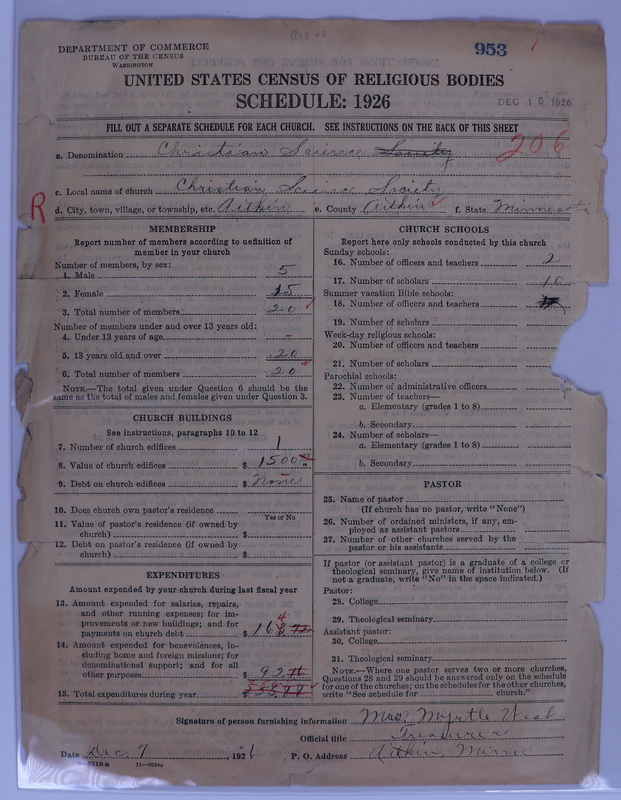 DEPARTMENT OF COMMERCE
BUREAU OF THE CENSUS
WASHINGTON
953
UNITED STATES CENSUS OF RELIGIOUS BODIES
SCHEDULE: 1926
DEC 10 1926
FILL OUT A SEPARATE SCHEDULE FOR EACH CHURCH. SEE INSTRUCTIONS ON THE BACK OF THIS SHEET
206
a. Denomination Christian Science Society
c. Local name of church Christian Science Society
R
d. City, town, village, or township, etc. Aitkin e. County Aitkin f. State Minnesota
MEMBERSHIP
Report number of members according to definition of
member in your church
Number of members, by sex:
1. Male 5
2. Female 15
3. Total number of members 20
Number of members under and over 13 years old:
4. Under 13 years of age -
5. 13 years old and over 20
6. Total number of members 20
NOTE.—The total given under Question 6 should be the
same as the total of males and females given under Question 3.
CHURCH BUILDINGS
See instructions, paragraphs 10 to 12
7. Number of church edifices 1
8. Value of church edifices $ 1500
9. Debt on church edifices $ None
10. Does church own pastor's residence
Yes or No
11. Value of pastor's residence (if owned by
church) $
12. Debt on pastor's residence (if owned by
church) $
EXPENDITURES
Amount expended by your church during last fiscal year
13. Amount expended for salaries, repairs,
and other running expenses; for im-
provements or new buildings; and for
payments on church debt $
14. Amount expended for benevolences, in-
cluding home and foreign missions; for
denominational support; and for all
other purposes $ 92
15. Total expenditures during year $
CHURCH SCHOOLS
Report here only schools conducted by this church
Sunday schools:
16. Number of officers and teachers 2
17. Number of scholars 10
Summer vacation Bible schools:
18. Number of officers and teachers
19. Number of scholars
Week-day religious schools:
20. Number of officers and teachers
21. Number of scholars
Parochial schools:
22. Number of administrative officers
23. Number of teachers—
a. Elementary (grades 1 to 8)
b. Secondary
24. Number of scholars—
a. Elementary (grades 1 to 8)
b. Secondary
PASTOR
25. Name of pastor
(If church has no pastor, write "None")
26. Number of ordained ministers, if any, em-
ployed as assistant pastors
27. Number of other churches served by the
pastor or his assistants
If pastor (or assistant pastor) is a graduate of a college or
theological seminary, give name of institution below. (If
not a graduate, write "No" in the space indicated.)
Pastor:
28. College
29. Theological seminary
Assistant pastor:
30. College
31. Theological seminary
NOTE.—Where one pastor serves two or more churches,
Questions 28 and 29 should be answered only on the schedule
for one of the churches; on the schedules for the other churches,
write "See schedule for church."
Signature of person furnishing information Mrs. Myrtle West
Official title Treasurer
Date Dec. 7, 1926 P. O. Address Aitkin, Minn